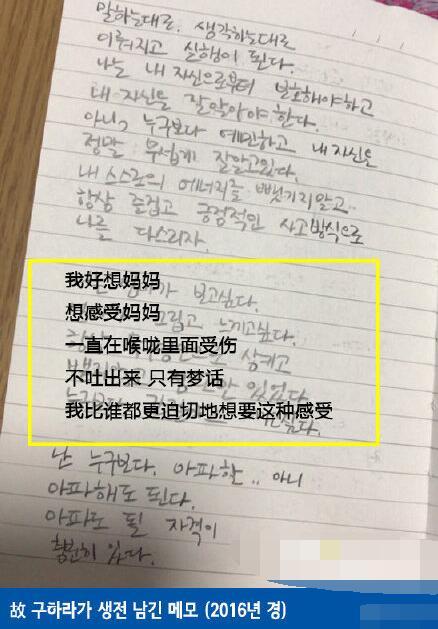 말하는대로. 생각하는대로
이뤄지고 실행이 된다.
나는 내 자신으로부터 보호해야하고
내 자신을 잘알아야한다.
아니, 누구보다 예민하고 내 자신을
정말 무섭게 잘알고있다.
내 스스로의 에너지를 뺏기지말고
항상 즐겁고 긍정적인 사고방식으로
나를 다스리자.
가 보고싶다.
我好想妈妈
그립고 느끼고싶다.
想感受妈妈
삼키고
一直在喉咙里面受伤
있었다.
不吐出来 只有梦话
我比谁都更迫切地想要这种感受
싶다.
난 누구보다. 아파할.. 아니
아파해도 된다.
아파도 될 자격이
충분히 있다.
故 구하라가 생전 남긴 메모 (2016년 경)